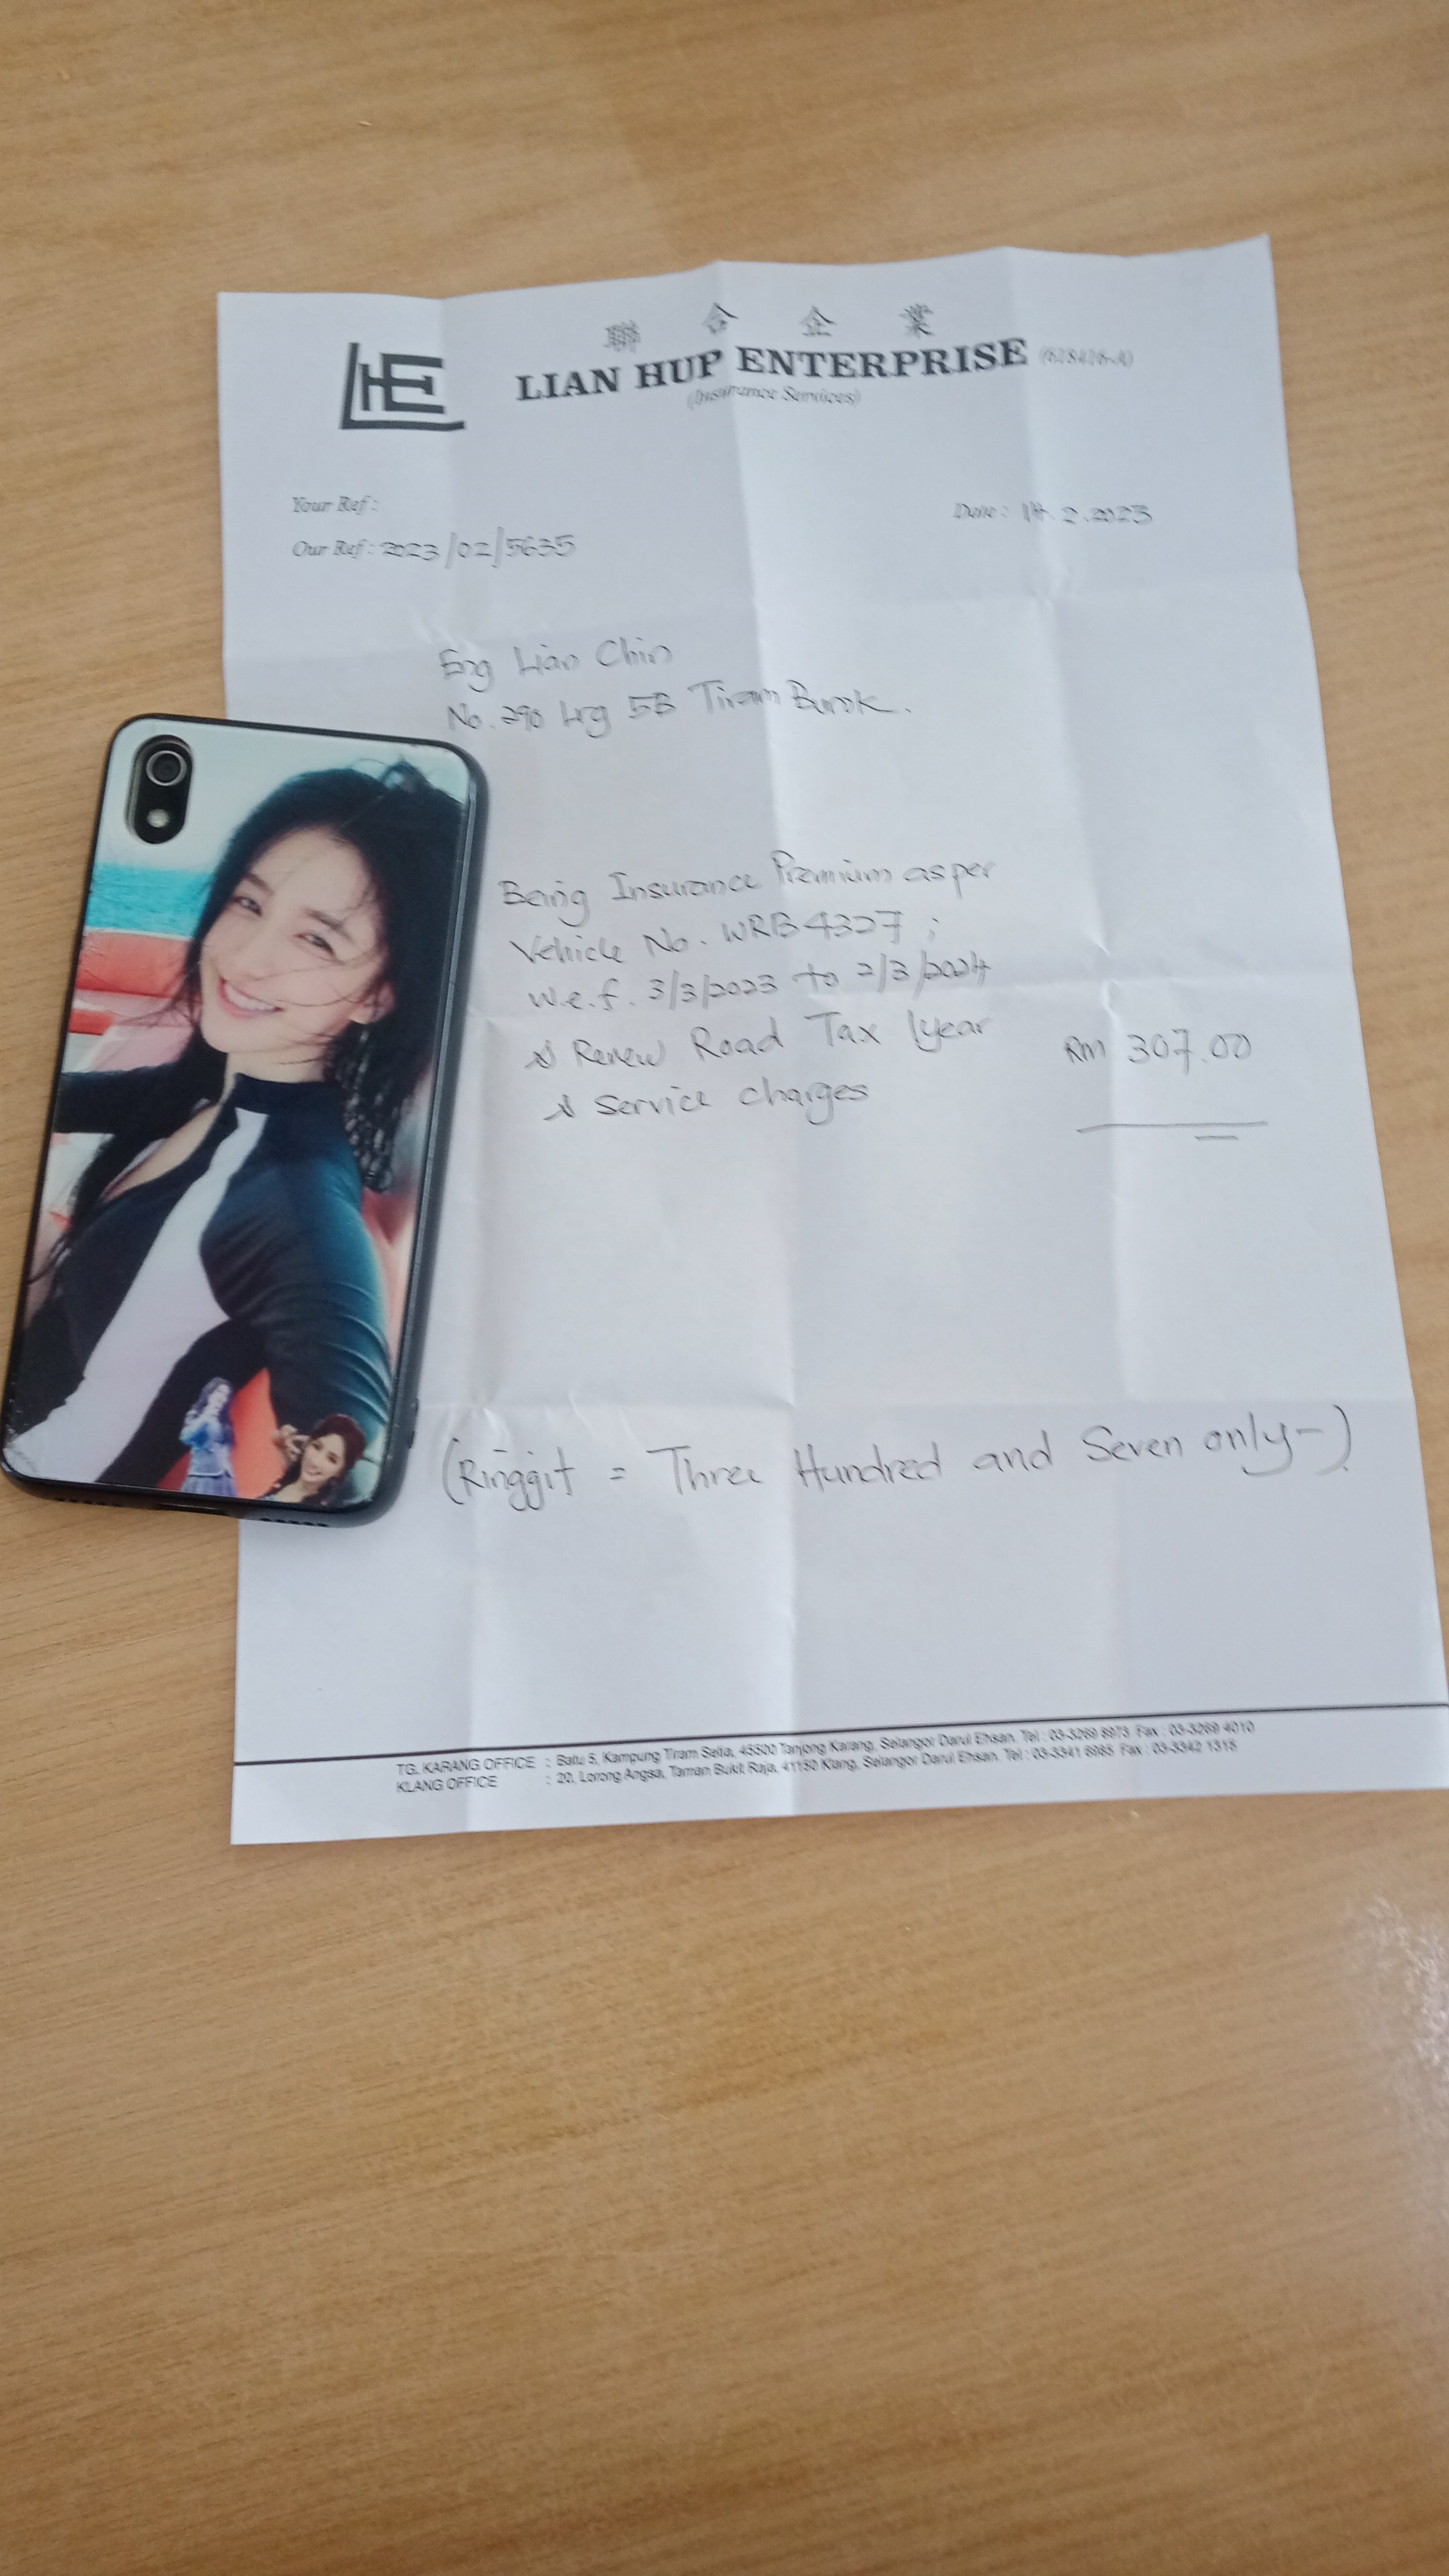 聯合企業
LHE
LIAN HUP ENTERPRISE (628416-A)
(Insurance Services)
Your Ref :
Date : 14.2.2023
Our Ref : 2023/02/5635
Eng Lian Chin
No. 290 Lrg 5B Tiram Burok.
Being Insurance Premium as per
Vehicle No. WRB4327 ;
w.e.f. 3/3/2023 to 2/3/2024
& Renew Road Tax 1year RM 307.00
& Service charges
(Ringgit = Three Hundred and Seven only-)
TG. KARANG OFFICE : Batu 5, Kampung Tiram Setia, 45500 Tanjong Karang, Selangor Darul Ehsan. Tel : 03-3269 8973 Fax : 03-3269 4010
KLANG OFFICE : 20, Lorong Angsa, Taman Bukit Raja, 41150 Klang, Selangor Darul Ehsan. Tel : 03-3341 8985 Fax : 03-3342 1315